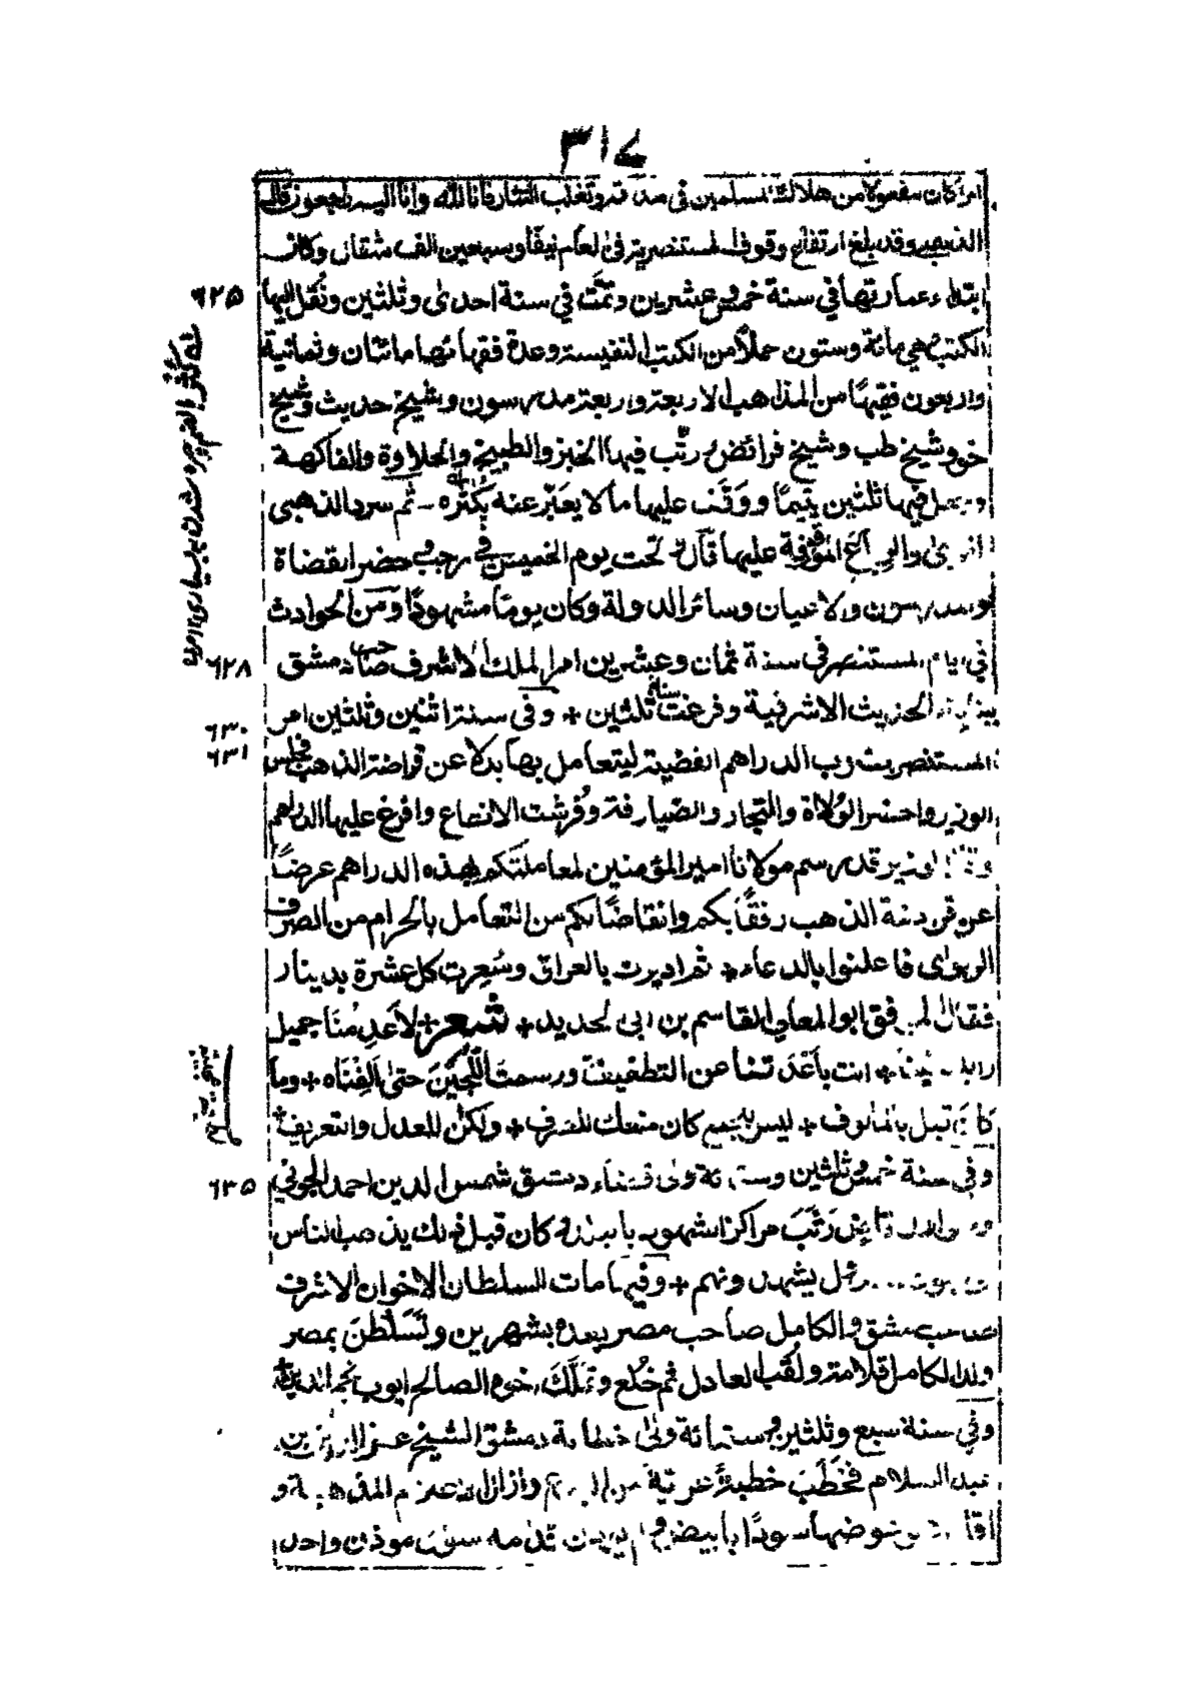 ٣١٧
امرا كان مفعولا من هلاك المسلمين فى مدته وتغلب التتار فانا لله وانا اليه راجعون قال
الذهبى وقد بلغ ارتفاع وقوف المستنصرية فى العام نيفًا وسبعين الف مثقال وكان
ابتداء عمارتها في سنة خمس وعشرين وتمّت في سنة احدى وثلثين ونُقل اليها ٦٢٥
الكتب وهي مائة وستون حملًا من الكتب النفيسة وعدة فقهائها مائتان وثمانية
واربعون فقيهًا من المذاهب الاربعة واربعة مدرسون وشيخ حديث وشيخ
نحو وشيخ طب وشيخ فرائض ورتّب فيها الخبز والطبيخ والحلاوة والفاكهة
وجعل فيها ثلثين يتيمًا ووَقَف عليها ما لا يعَبّر عنه كَثْرَه ـ ثم سرد الذهبى
القرى والرباع الموقوفة عليها قال وفتحت يوم الخميس في رجب وحضر القضاة
والمدرسون والاعيان وسائر الدولة وكان يومًا مشهودًا ومن الحوادث
في ايام المستنصر في سنة ثمان وعشرين امر الملك الاشرف صاحب دمشق ٦٢٨
ببناء دار الحديث الاشرفية وفرغت سنة ثلثين + وفى سنة اثنين وثلثين امر ٦٣٠
المستنصر بضرب الدراهم الفضية ليتعامل بها بدلا عن قراضة الذهب فجلس ٦٣١
الوزير واحضر الوُلاة والتجار والصيارفة وفُرشت الانطاع وافرغ عليها الدراهم
وقال الوزير قد رسم مولانا امير المؤمنين لمعاملتكم بهذه الدراهم عوضًا
عن قراضة الذهب رفقًا بكم وانقاذًا لكم من التعامل بالحرام من الصرف
الربوى فاعلنوا بالدعاء + ثم اديرت بالعراق وسُعِرت كل عشرة بدينار
فقال الموفق ابو المعالي القاسم بن ابى الحديد + شعر + لا عَدِمْنا جميل
رايك فينا + انت باعَدتنا عن التطفيف + ورسمت اللُّجَيْنَ حتى اَلِفْناه + وما
كان قبل بالمألوف + ليس للجمع كان منعك للصرف + ولكن للعدل والتعريف +
وفي سنة خمس وثلثين وستمائة ولى قضاء دمشق شمس الدين احمد الجونى ٦٣٥
وهو اول قاض رَتَّبَ مراكز الشهود بالبلد وكان قبل ذلك يذهب الناس
الى بيوت العدول يشهدونهم + وفيها مات السلطان الاخوان الاشرف
صاحب دمشق والكامل صاحب مصر بعده بشهرين وتَسَلْطَنَ بمصر
ولد الكامل قلامة ولُقِّب العادل ثم خُلع وتَمَلَّكَ اخوه الصالح ايوب نجم الدين +
وفي سنة سبع وثلثين وستمائة ولى خطابة دمشق الشيخ عز الدين بن
عبد السلام فخَطَبَ خطبةً عرية من البدع وازال الاعلام المذهبة و
اقام عوضها سودًا بابيض ولم يوذن قدامه سوى موذن واحد